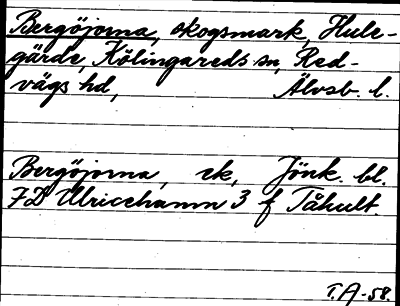 Bergöjorna, skogsmark, Hule-
gärde, Kölingareds sn, Red-
vägs hd, Älvsb. l.
Bergöjorna, ek, Jönk. bl.
7D Ulricehamn 3 f Tåhult.
T.A -58.